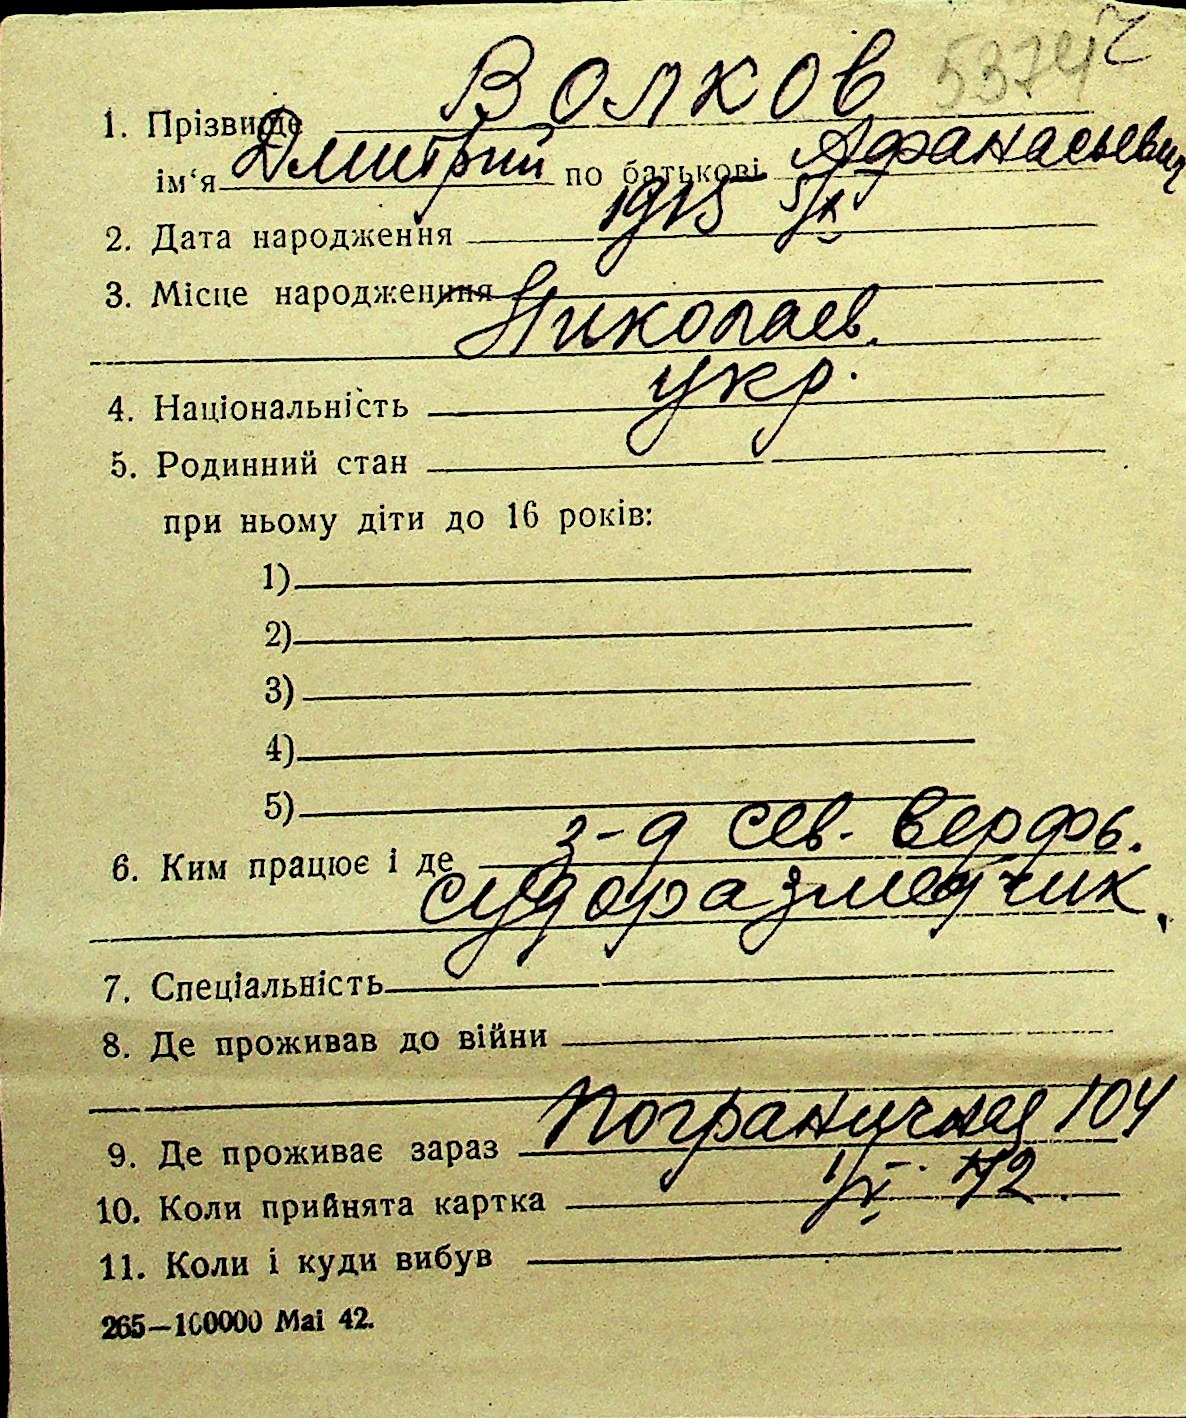 5374
1. Прізвище Волков
ім‘я Дмитрий по батькові Афанасьевич
2. Дата народження 1915 5/X
3. Місце народження
Николаев.
4. Національність укр.
5. Родинний стан
при ньому діти до 16 років:
1)
2)
3)
4)
5)
6. Ким працює і де з-д сев. верфь.
судоразметчик.
7. Спеціальність
8. Де проживав до війни
9. Де проживає зараз Пограничная 104
10. Коли прийнята картка 42.
11. Коли і куди вибув
265—100000 Mai 42.